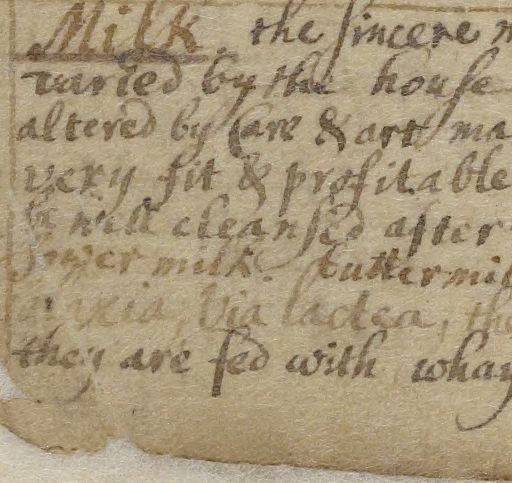 Milk. the sincere m
varied by the house
altered by Care & art ma
very fit & profitable
will cleansed after
sower milk. buttermil
Via lactea, the
they are fed with whay